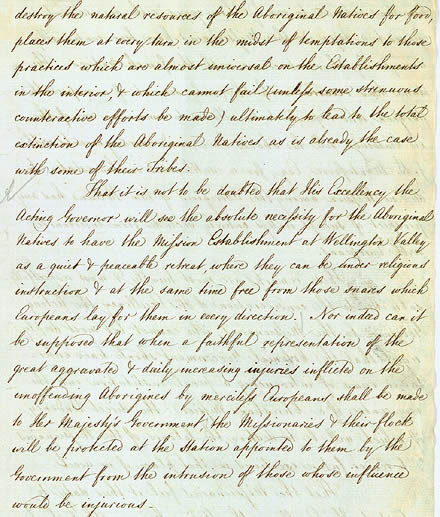 destroy the natural resources of the Aboriginal Natives for food,
places them at every turn in the midst of temptations to those
practices which are almost universal on the Establishments
in the interior, & which cannot fail (unless some strenuous
counteractive efforts be made) ultimately to lead to the total
extinction of the Aboriginal Natives as is already the case
with some of their Tribes.
That it is not to be doubted that His Excellency the
Acting Governor will see the absolute necessity for the Aboriginal
Natives to have the Mission Establishment at Wellington Valley
as a quiet & peaceable retreat, where they can be under religious
instruction & at the same time free from those snares which
Europeans lay for them in every direction. Nor indeed can it
be supposed that when a faithful representation of the
great aggravated & daily increasing injuries inflicted on the
unoffending Aborigines by merciless Europeans shall be made
to Her Majesty's Government, the Missionaries & their flock
will be protected at the Station appointed to them by the
Government from the intrusion of those whose influence
would be injurious.